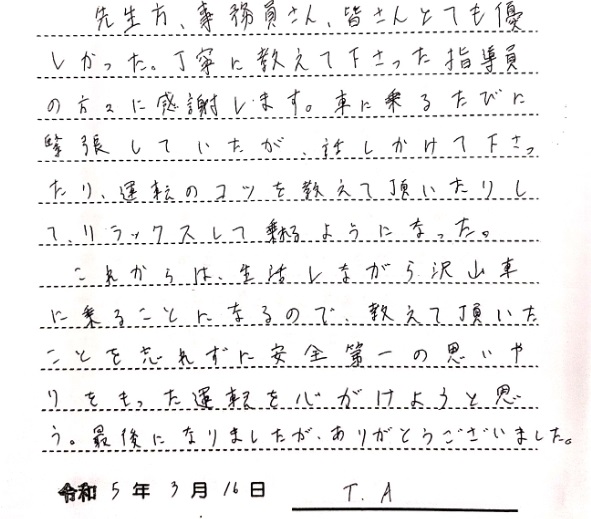 先生方、事務員さん、皆さんとても優
しかった。丁寧に教えて下さった指導員
の方々に感謝します。車に乗るたびに
緊張していたが、話しかけて下さっ
たり、運転のコツを教えて頂いたりし
て、リラックスして乗れるようになった。
これからは、生活しながら沢山車
に乗ることになるので、教えて頂いた
ことを忘れずに安全第一の思いや
りをもった運転を心がけようと思
う。最後になりましたが、ありがとうございました。
令和 5 年 3 月 16 日 T. A